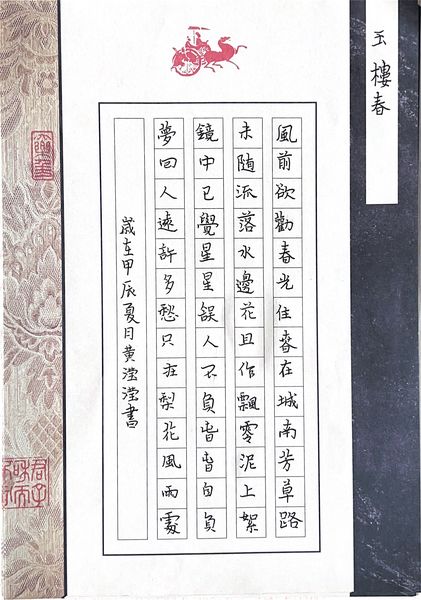 玉樓春
風前欲勸春光住萅在城南芳草路
未随流落水邊花且作飄零泥上絮
鏡中已覺星星誤人不負旾旾自負
夢回人遠許多愁只在梨花風雨處
歲在甲辰夏月黄滢滢書